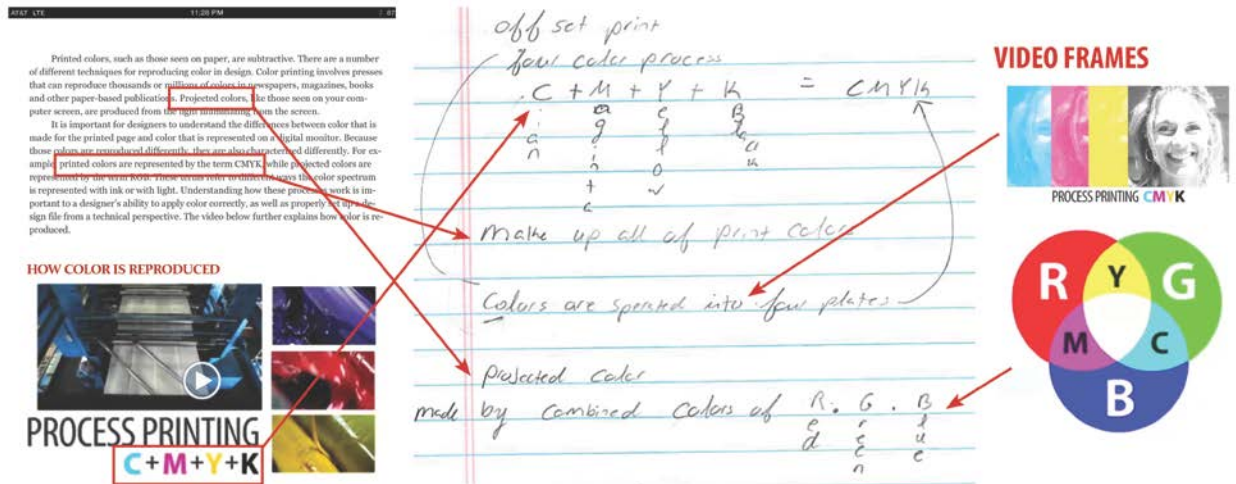 AT&T LTE 11:26 PM 87
Printed colors, such as those seen on paper, are subtractive. There are a number
of different techniques for reproducing color in design. Color printing involves presses
that can reproduce thousands or millions of colors in newspapers, magazines, books
and other paper-based publications. Projected colors, like those seen on your com-
puter screen, are produced from the light illuminating from the screen.
It is important for designers to understand the differences between color that is
made for the printed page and color that is represented on a digital monitor. Because
those colors are reproduced differently, they are also characterized differently. For ex-
ample, printed colors are represented by the term CMYK, while projected colors are
represented by the term RGB. These terms refer to different ways the color spectrum
is represented with ink or with light. Understanding how these processes work is im-
portant to a designer's ability to apply color correctly, as well as properly set up a de-
sign file from a technical perspective. The video below further explains how color is re-
produced.
HOW COLOR IS REPRODUCED
PROCESS PRINTING
C+M+Y+K
off set print
four color process
C + M + Y + K = CMYK
Make up all of print color
Colors are sperated into four plates
Projected color
made by combined colors of Red. Green. Blue
VIDEO FRAMES
PROCESS PRINTING CMYK
R Y G
M C
B